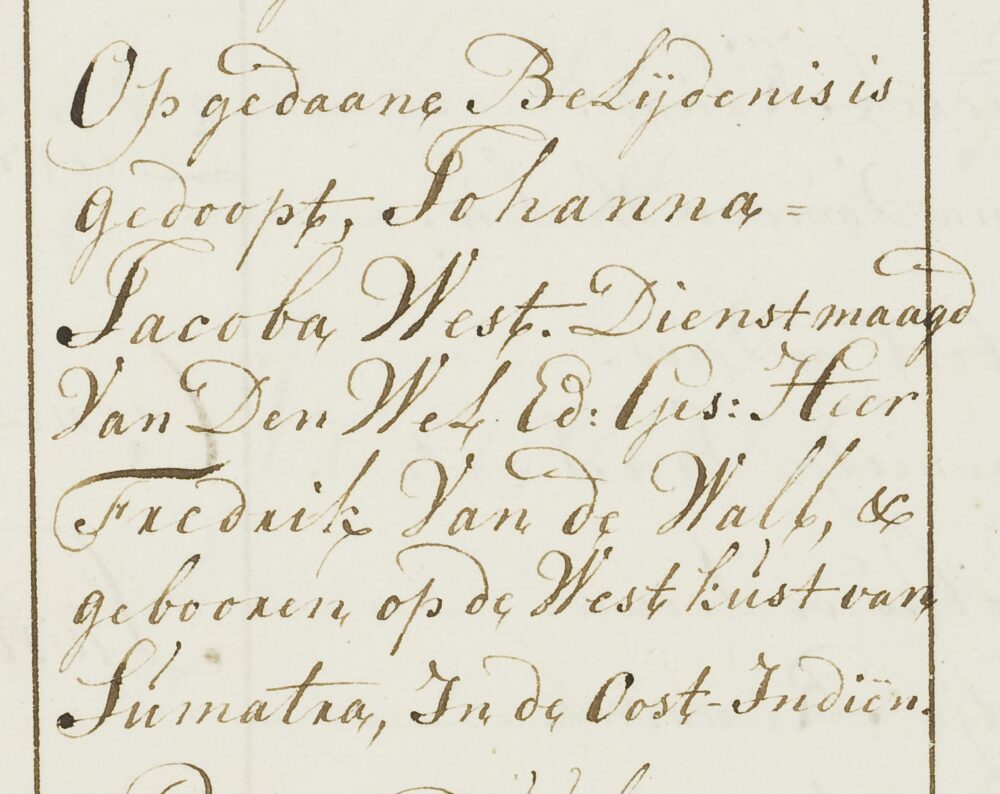 Op gedaane Belijdenis is
gedoopt, Johanna =
Jacoba West. Dienstmaagd
Van Den Wel Ed: Ges: Heer
Fredrik Van de Wall, &
gebooren op de West kúst van
Súmatra, In de Oost-Indiën.